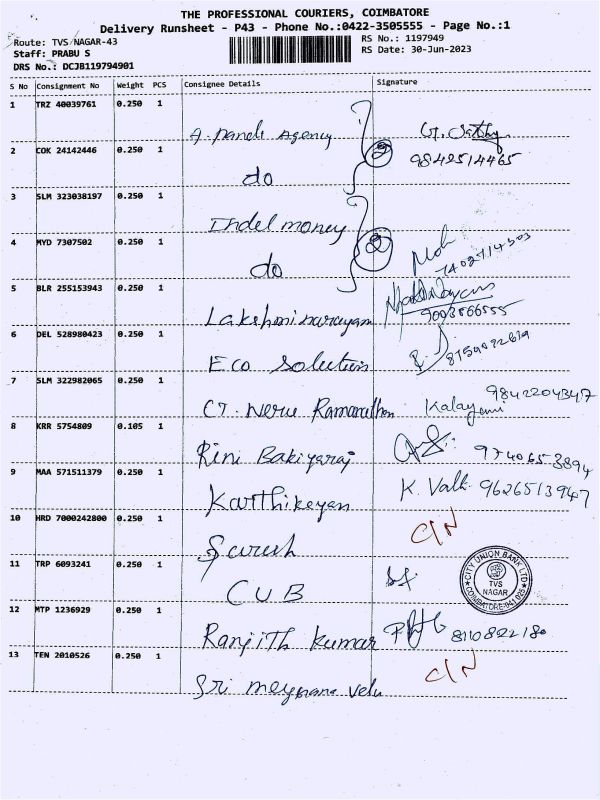 THE PROFESSIONAL COURIERS, COIMBATORE
Delivery Runsheet - P43 - Phone No.:0422-3505555 - Page No.:1
Route: TVS NAGAR-43
RS No.: 1197949
Staff: PRABU S
RS Date: 30-Jun-2023
DRS No.: DCJB119794901
S No Consignment No Weight PCS Consignee Details Signature
1 TRZ 40039761 0.250 1
Agency
2 COK 24142446 0.250 1 9842514465
do
3 SLM 323038197 0.250 1
Indel money
4 MYD 7307502 0.250 1
do
5 BLR 255153943 0.250 1
Lakshminarayan
6 DEL 528980423 0.250 1
Eco Solutions
7 SLM 322982065 0.250 1
9842204347
8 KRR 5754809 0.105 1
Rini Bakiyaraj 9740653894
9 MAA 571511379 0.250 1
Karthikeyan K. Valli 9626513947
10 HRD 7000242800 0.250 1 C/N
Suresh
11 TRP 6093241 0.250 1
CITY UNION BANK LTD
TVS
NAGAR
COIMBATORE-641025
CUB
12 MTP 1236929 0.250 1
Ranjith Kumar
13 TEN 2010526 0.250 1 C/N
Sri velu